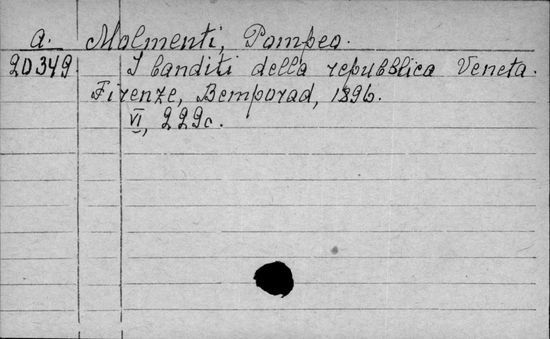 a. Molmenti, Pompeo.
20349. I banditi della repubblica Veneta.
Firenze, Bemporad, 1896.
VI, 229 c.